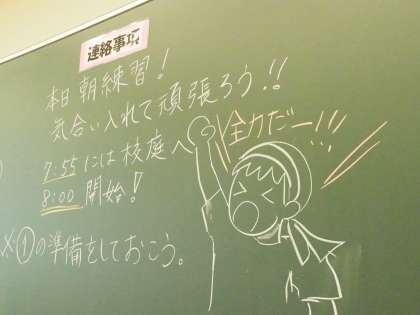 連絡事項
本日 朝練習!
気合い入れて頑張ろう!!
7:55には校庭へ
8:00 開始!
※①の準備をしておこう。
全力だー!!!